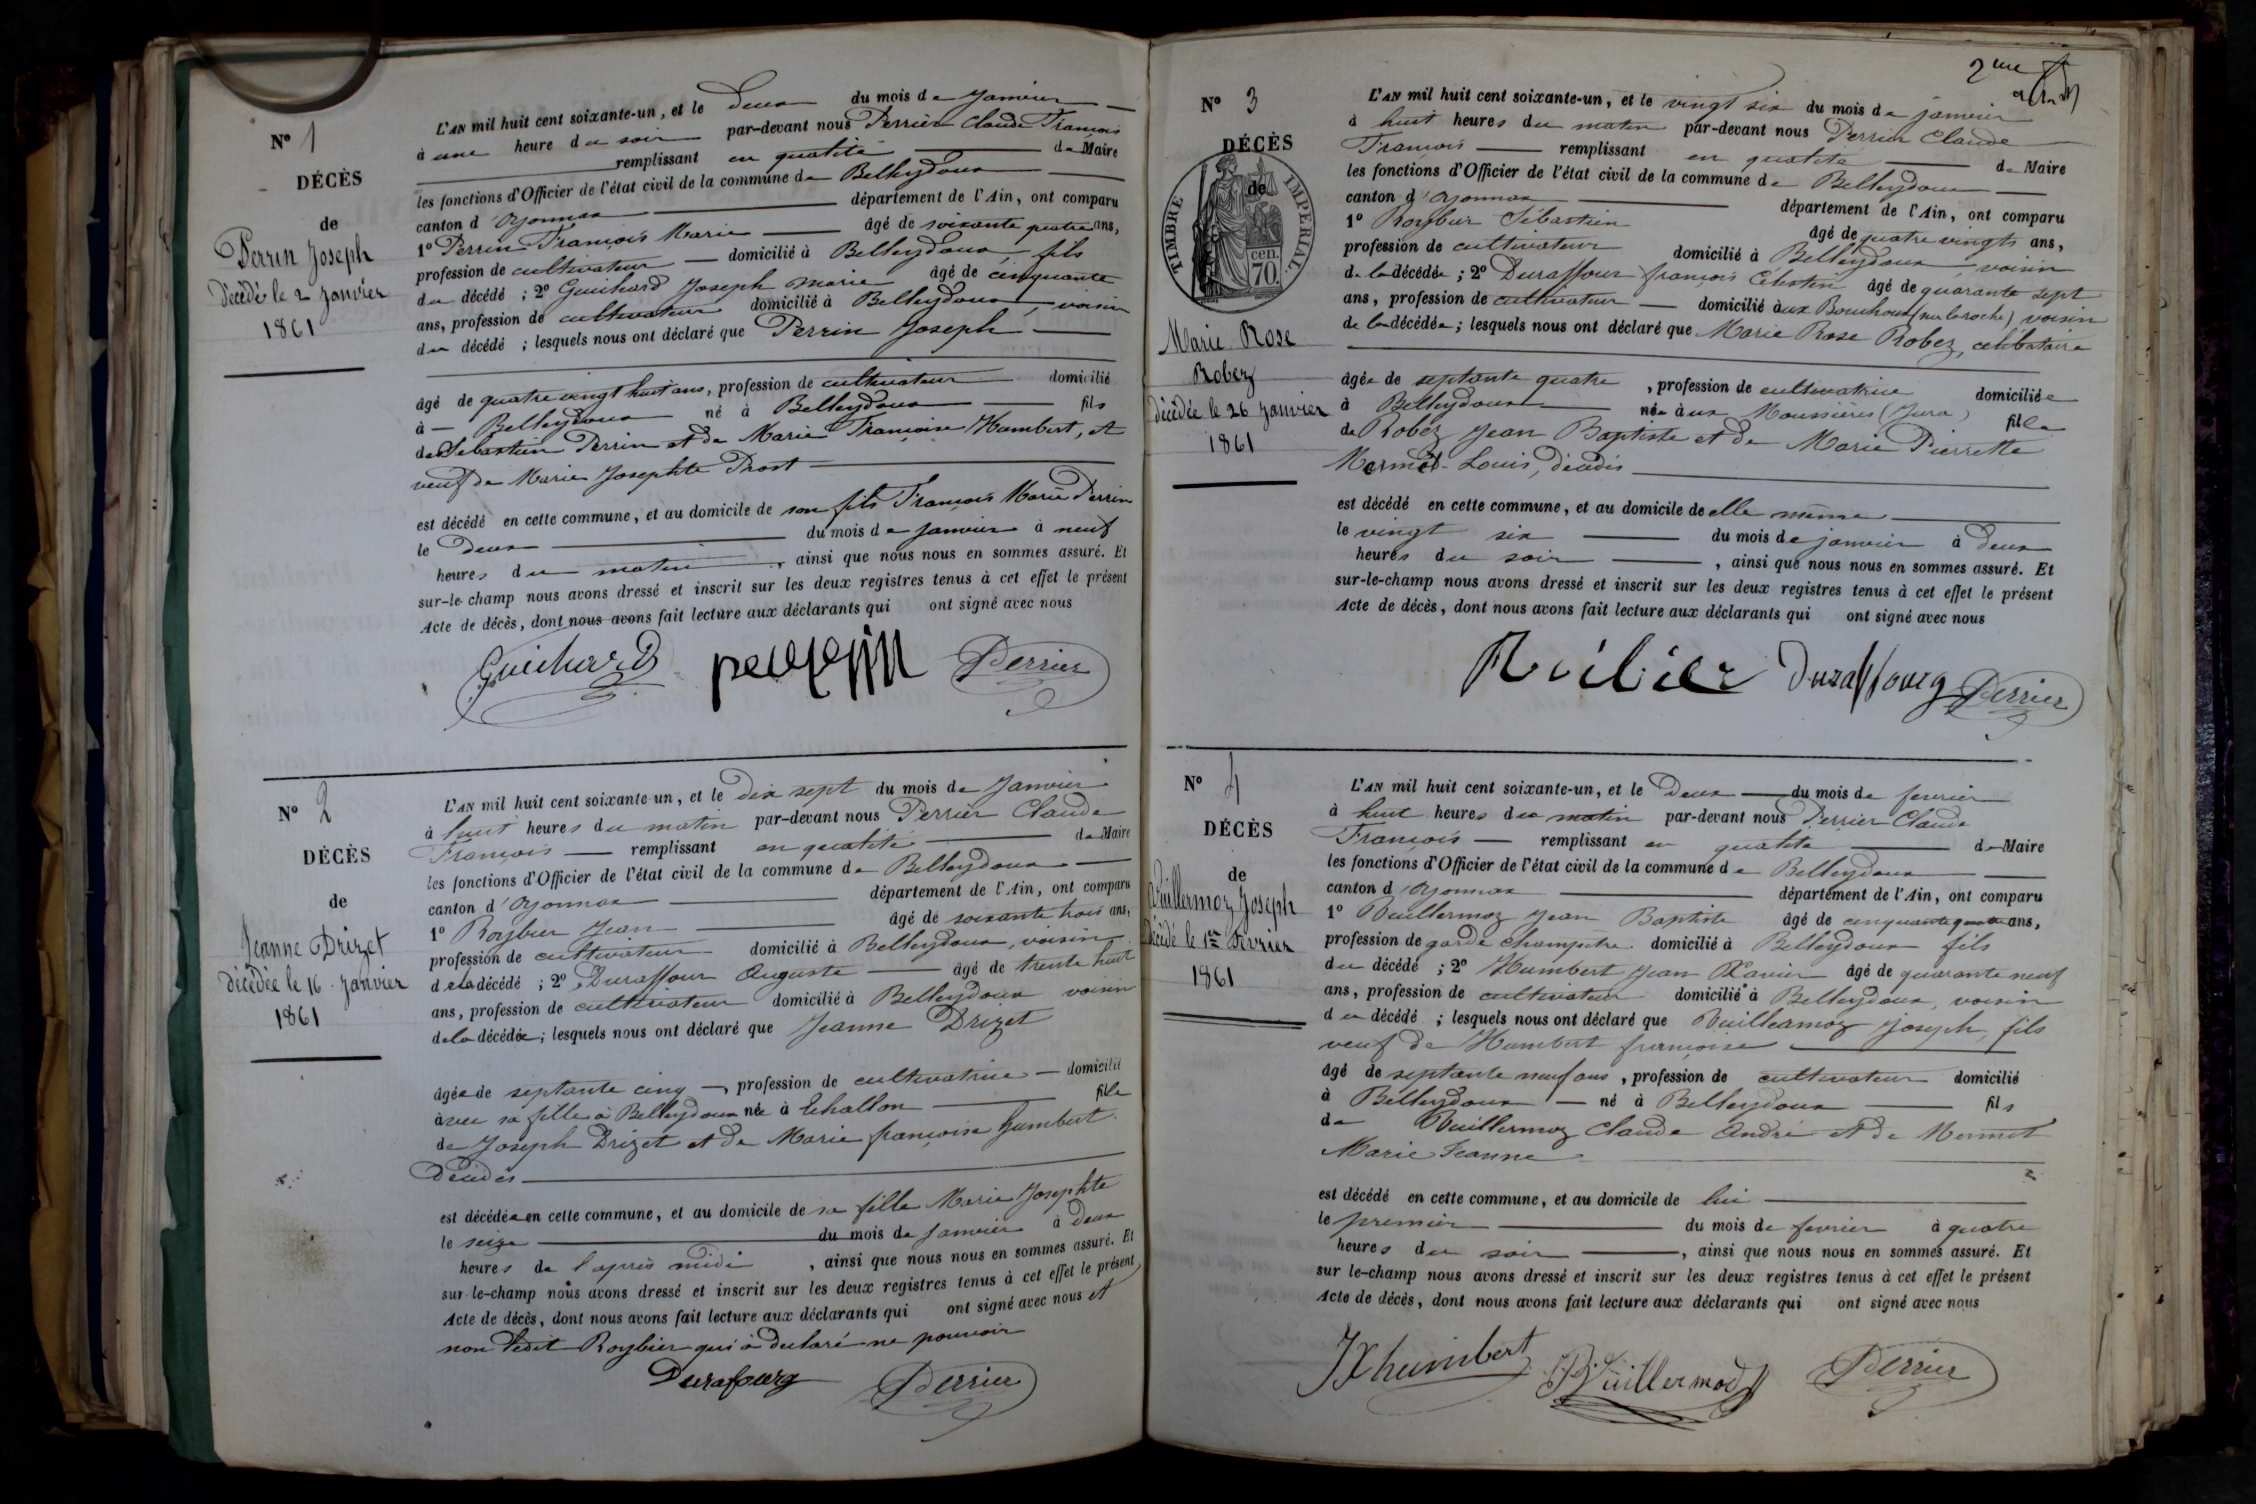 N° 1
DÉCÈS
de
Perrin Joseph
décédé le 2 janvier
1861
L'AN mil huit cent soixante-un, et le deux du mois de janvier
à une heure du soir par-devant nous Perrier Claude François
remplissant en qualité de Maire
les fonctions d'Officier de l'état civil de la commune de Belleydoux
canton d'oyonnax département de l'Ain, ont comparu
1° Perrin François Marie âgé de soixante quatre ans,
profession de cultivateur domicilié à Belleydoux, fils
du décédé ; 2° Guichard Joseph marie âgé de cinquante
ans, profession de cultivateur domicilié à Belleydoux, voisin
du décédé ; lesquels nous ont déclaré que Perrin Joseph
âgé de quatre vingt huit ans, profession de cultivateur domicilié
à Belleydoux né à Belleydoux fils
de Sébastien Perrin et de Marie Françoise Humbert, et
veuf de Marie Josephte Prost
est décédé en cette commune, et au domicile de son fils François Marie Perrin
le deux du mois de janvier à neuf
heures du matin, ainsi que nous nous en sommes assuré. Et
sur-le-champ nous avons dressé et inscrit sur les deux registres tenus à cet effet le présent
Acte de décès, dont nous avons fait lecture aux déclarants qui ont signé avec nous
Guichard Perrier
N° 2
DÉCÈS
de
Jeanne Drizet
décédée le 16 janvier
1861
L'AN mil huit cent soixante-un, et le dix sept du mois de janvier
à huit heures du matin par-devant nous Perrier Claude
François remplissant en qualité de Maire
les fonctions d'Officier de l'état civil de la commune de Belleydoux
canton d'oyonnax département de l'Ain, ont comparu
1° Roybier Jean âgé de soixante trois ans,
profession de cultivateur domicilié à Belleydoux, voisin
de la décédé ; 2° Duraffour Auguste âgé de trente huit
ans, profession de cultivateur domicilié à Belleydoux voisin
de la décédée ; lesquels nous ont déclaré que Jeanne Drizet
âgée de septante cinq, profession de cultivatrice domicilié
avec sa fille à Belleydoux née à Echallon fille
de Joseph Drizet et de Marie françoise humbert
Décédés
est décédée en cette commune, et au domicile de sa fille Marie Josephte
le seize du mois de janvier à deux
heures de l'après midi, ainsi que nous nous en sommes assuré. Et
sur-le-champ nous avons dressé et inscrit sur les deux registres tenus à cet effet le présent
Acte de décès, dont nous avons fait lecture aux déclarants qui ont signé avec nous et
non ledit Roybier qui a déclaré ne pouvoir
Durafourg Perrier
2me
N° 3
DÉCÈS
de
TIMBRE IMPERIAL
70 cen.
Marie Rose
Robez
décédée le 26 janvier
1861
L'AN mil huit cent soixante-un, et le vingt six du mois de janvier
à huit heures du matin par-devant nous Perrier Claude
François remplissant en qualité de Maire
les fonctions d'Officier de l'état civil de la commune de Belleydoux
canton d'oyonnax département de l'Ain, ont comparu
1° Roybier Sébastien âgé de quatre vingts ans,
profession de cultivateur domicilié à Belleydoux, voisin
de la décédée ; 2° Duraffour françois Célestin âgé de quarante sept
ans, profession de cultivateur domicilié aux Bouchoux (sur la roche) voisin
de la décédée ; lesquels nous ont déclaré que Marie Rose Robez, célibataire
âgée de septante quatre, profession de cultivatrice domiciliée
à Belleydoux née aux Moussières (Jura) fille
de Robez Jean Baptiste et de Marie Pierrette
Mermet-Louis, décédés
est décédé en cette commune, et au domicile de elle même
le vingt six du mois de janvier à deux
heures du soir, ainsi que nous nous en sommes assuré. Et
sur-le-champ nous avons dressé et inscrit sur les deux registres tenus à cet effet le présent
Acte de décès, dont nous avons fait lecture aux déclarants qui ont signé avec nous
Duraffourg Perrier
N° 4
DÉCÈS
de
Vuillermoz Joseph
décédé le 1er Février
1861
L'AN mil huit cent soixante-un, et le Deux du mois de fevrier
à huit heures du matin par-devant nous Perrier Claude
François remplissant en qualité de Maire
les fonctions d'Officier de l'état civil de la commune de Belleydoux
canton d'oyonnax département de l'Ain, ont comparu
1° Vuillermoz Jean Baptiste âgé de cinquante quatre ans,
profession de garde champêtre domicilié à Belleydoux fils
du décédé ; 2° Humbert Jean Xavier âgé de quarante neuf
ans, profession de cultivateur domicilié à Belleydoux, voisin
du décédé ; lesquels nous ont déclaré que Vuillermoz Joseph, fils
veuf de Humbert françoise
âgé de septante neuf ans, profession de cultivateur domicilié
à Belleydoux né à Belleydoux fils
de Vuillermoz Claude André et de Mermet
Marie Jeanne
est décédé en cette commune, et au domicile de lui
le premier du mois de fevrier à quatre
heures du soir, ainsi que nous nous en sommes assuré. Et
sur le-champ nous avons dressé et inscrit sur les deux registres tenus à cet effet le présent
Acte de décès, dont nous avons fait lecture aux déclarants qui ont signé avec nous
JX humbert JB Vuillermoz Perrier